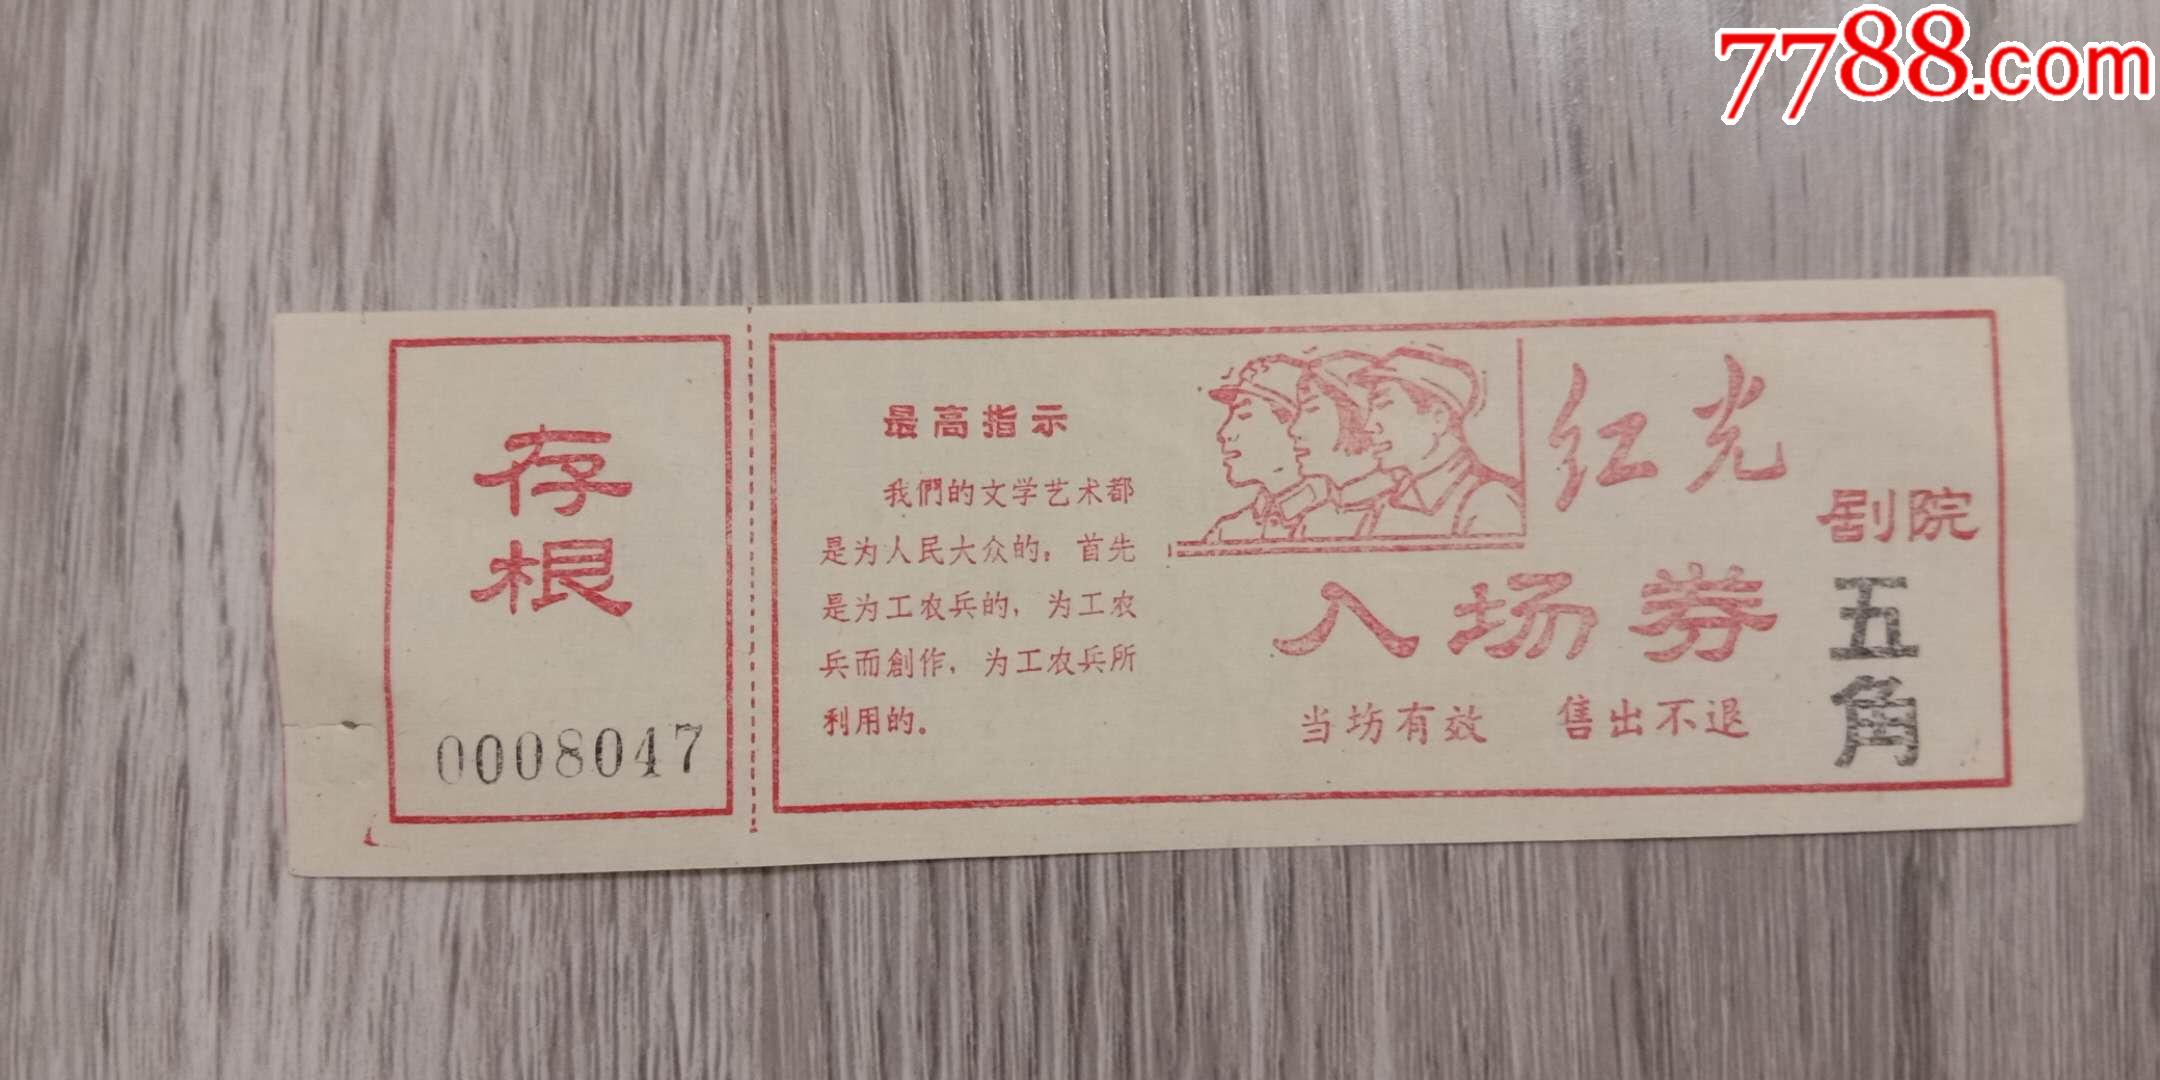 7788.com
存
根
0008047
最高指示
我們的文学艺术都
是为人民大众的，首先
是为工农兵的，为工农
兵而創作，为工农兵所
利用的。
红光
剧院
入场券
五
角
当坊有效 售出不退